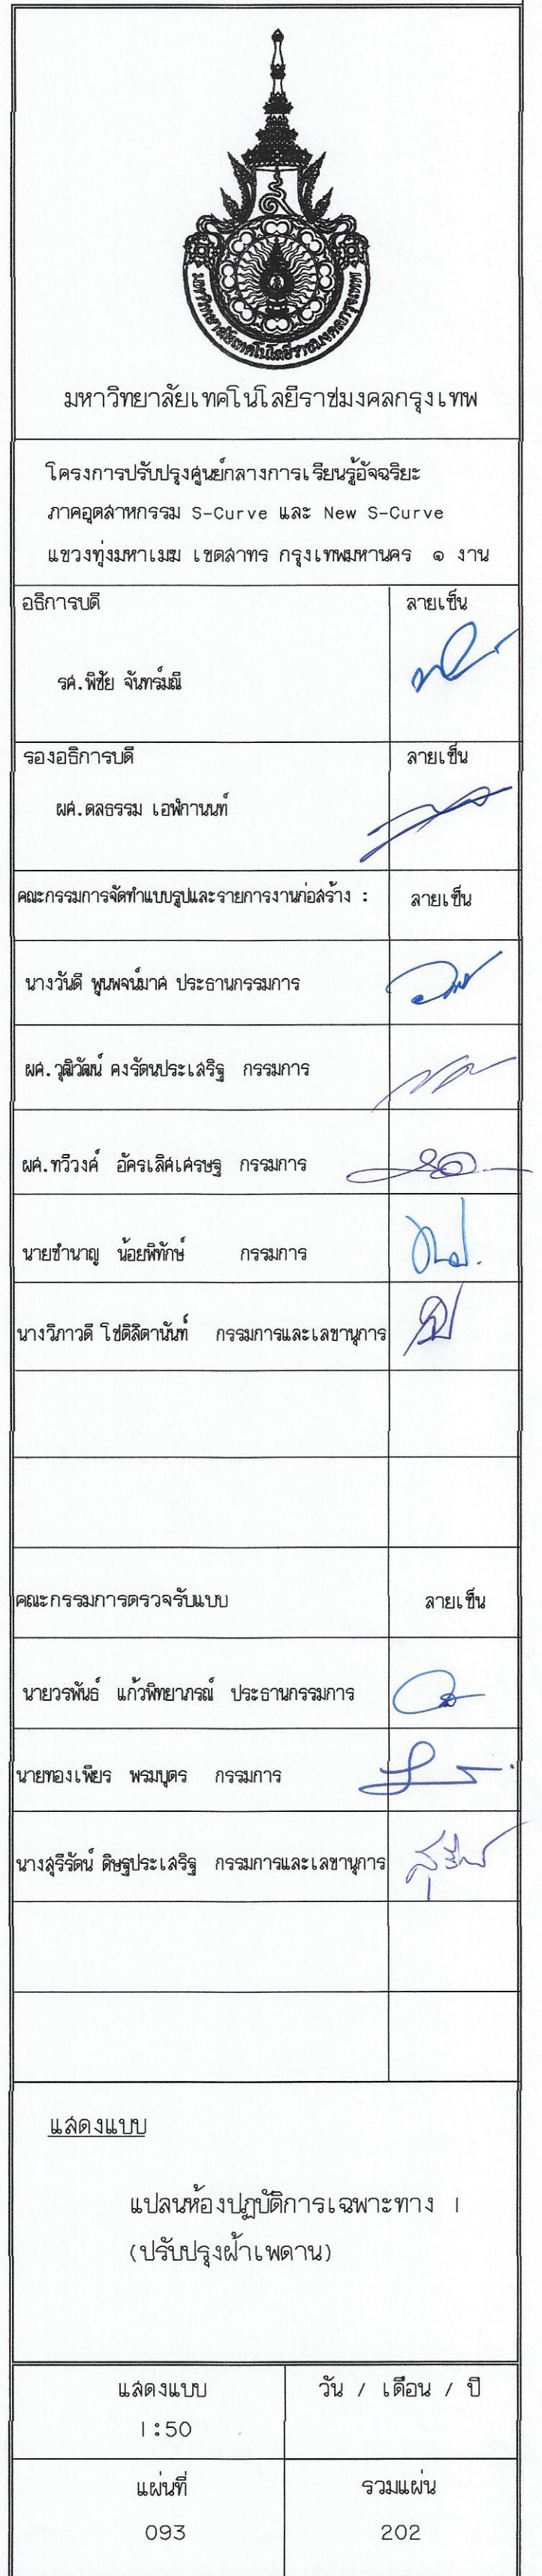 มหาวิทยาลัยเทคโนโลยีราชมงคลกรุงเทพ
มหาวิทยาลัยเทคโนโลยีราชมงคลกรุงเทพ
โครงการปรับปรุงศูนย์กลางการเรียนรู้อัจฉริยะ
ภาคอุตสาหกรรม S-Curve และ New S-Curve
แขวงทุ่งมหาเมฆ เขตสาทร กรุงเทพมหานคร ๑ งาน
อธิการบดี ลายเซ็น
รศ.พิชัย จันทร์มณี
รองอธิการบดี ลายเซ็น
ผศ.ดลธรรม เอฬกานนท์
คณะกรรมการจัดทำแบบรูปและรายการงานก่อสร้าง : ลายเซ็น
นางวันดี พูนพจน์มาศ ประธานกรรมการ
ผศ.วุฒิวัฒน์ คงรัตนประเสริฐ กรรมการ
ผศ.ทวีวงศ์ อัครเลิศเศรษฐ กรรมการ
นายชำนาญ น้อยพิทักษ์ กรรมการ
นางวิภาวดี โชติลิตานันท์ กรรมการและเลขานุการ
คณะกรรมการตรวจรับแบบ ลายเซ็น
นายวรพันธ์ แก้วพิทยาภรณ์ ประธานกรรมการ
นายทองเพียร พรมบุตร กรรมการ
นางสุรีรัตน์ ดิษฐประเสริฐ กรรมการและเลขานุการ
แสดงแบบ
แปลนห้องปฏบัติการเฉพาะทาง 1
(ปรับปรุงฝ้าเพดาน)
แสดงแบบ วัน / เดือน / ปี
1:50
แผ่นที่ รวมแผ่น
093 202